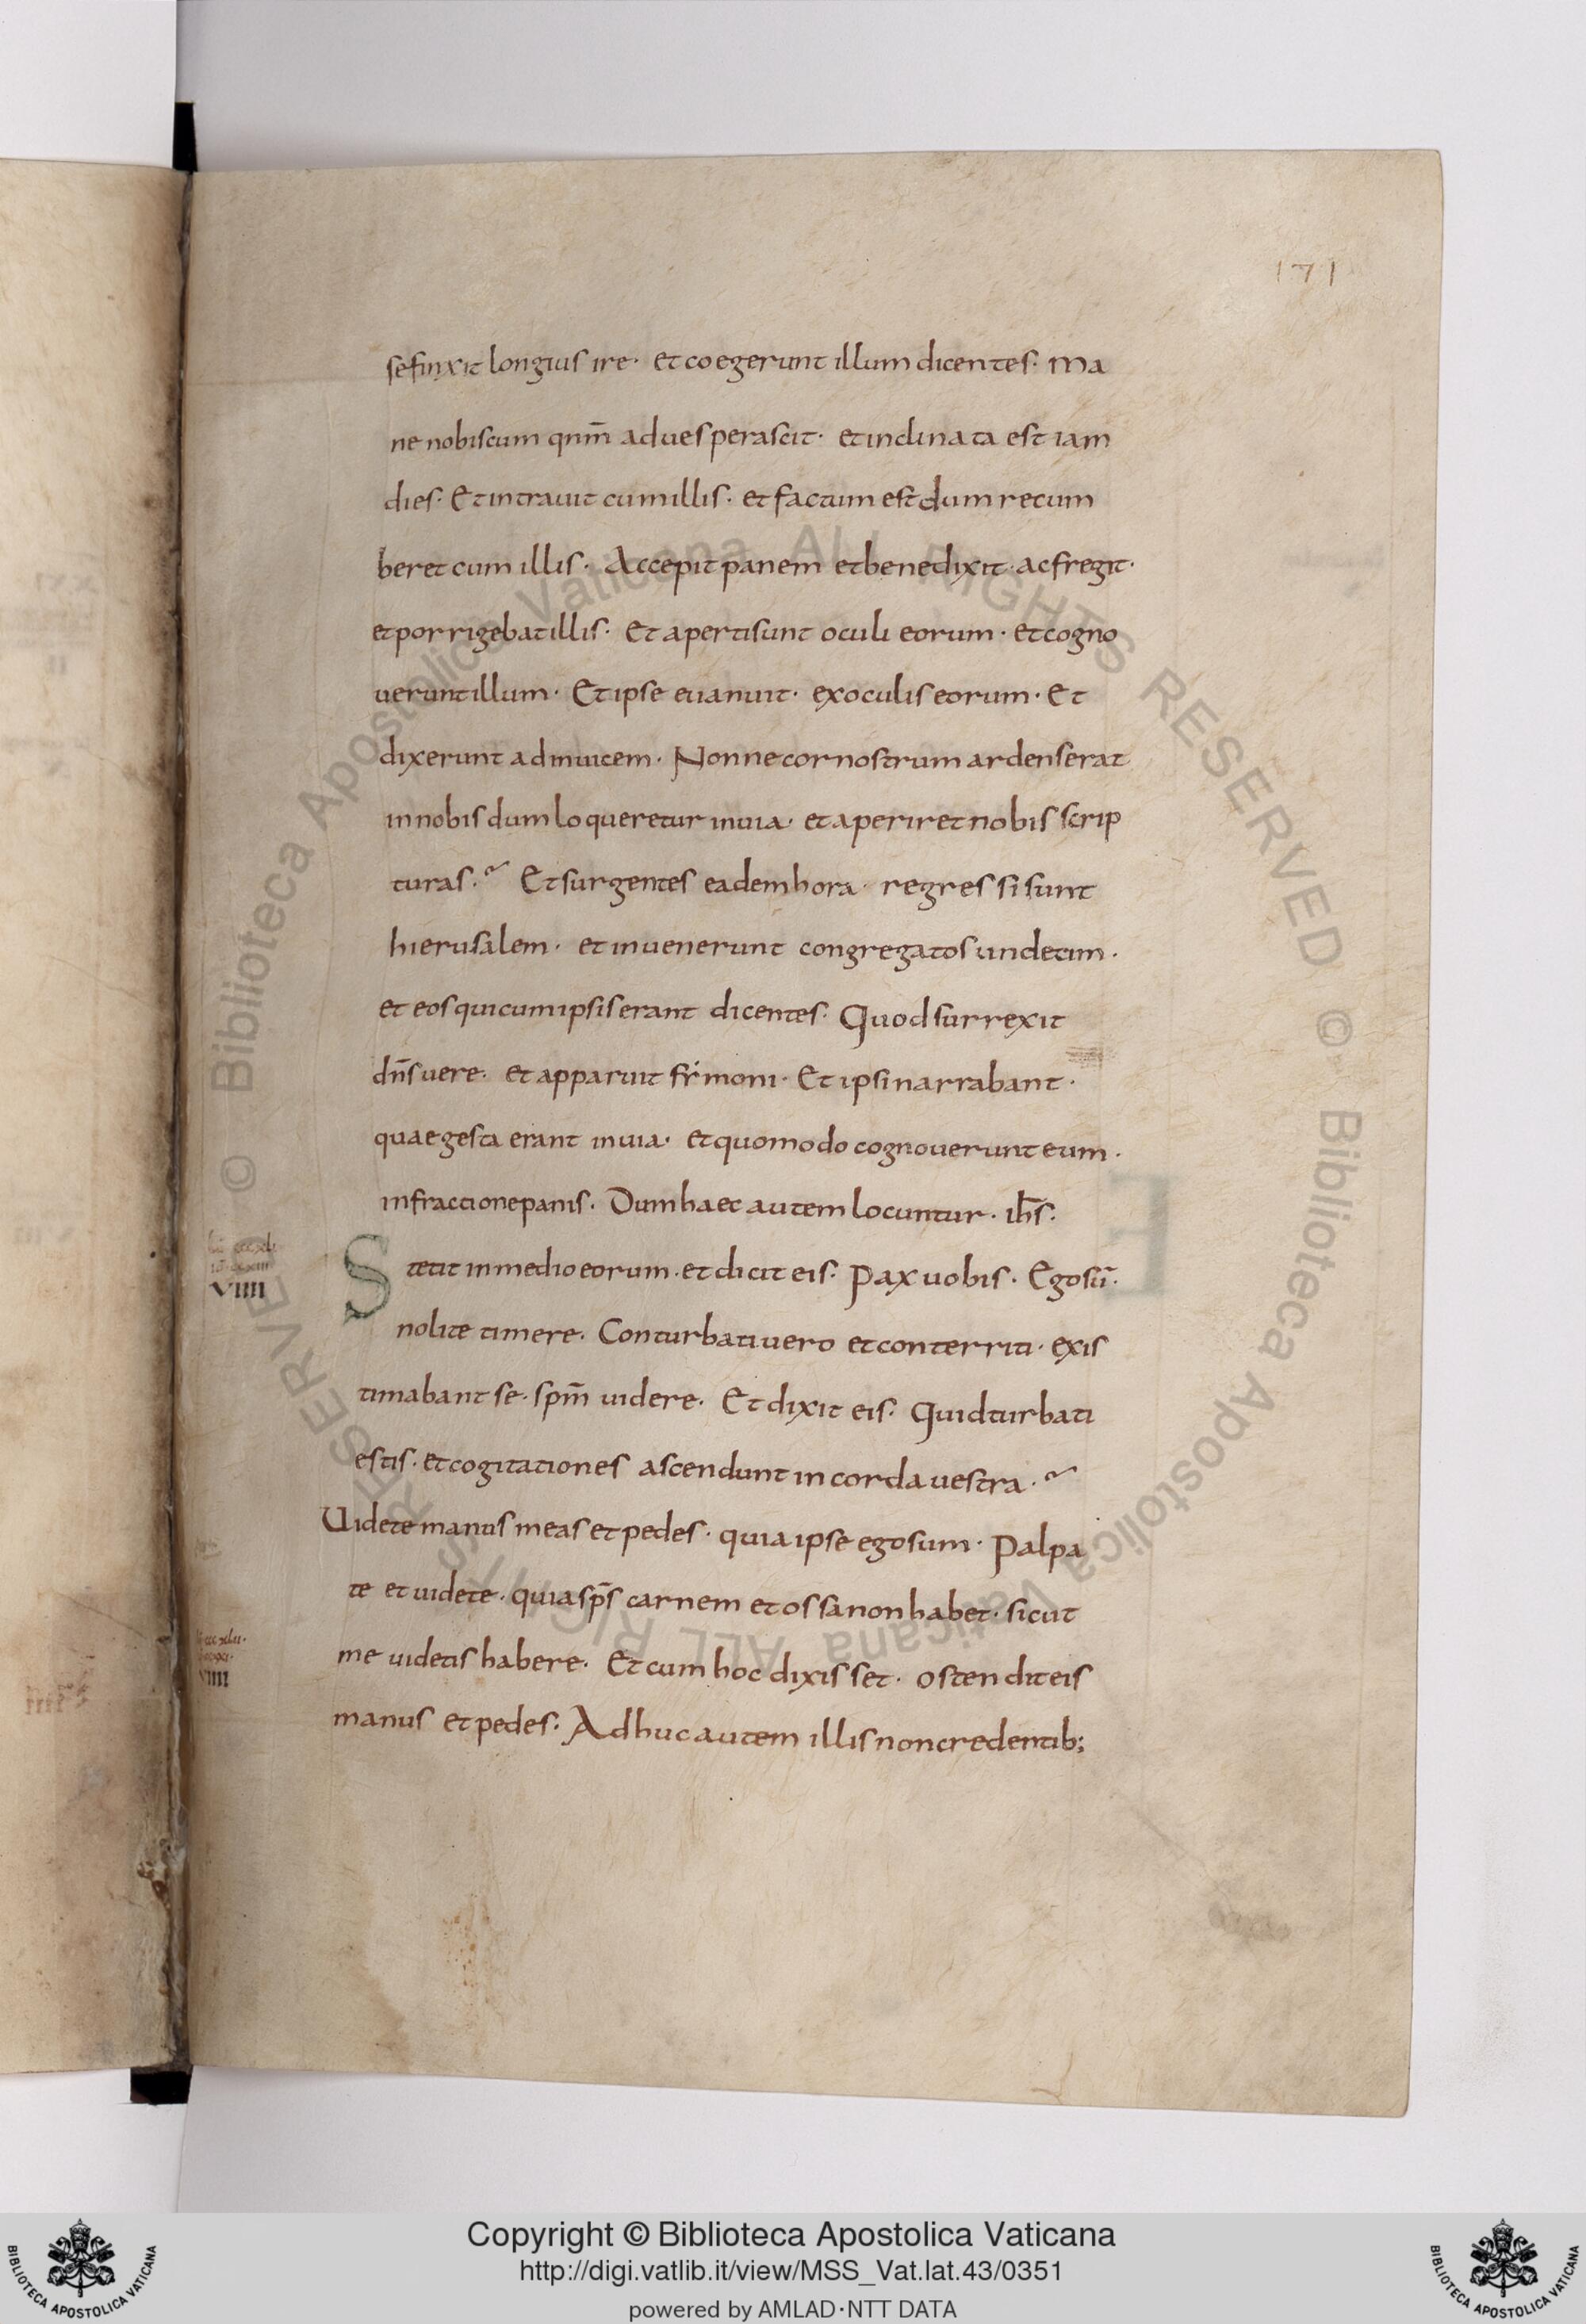 171
se finxit longius ire· et coegerunt illum dicentes· ma
ne nobiscum qnm̄ aduesperascit· et inclinata est iam
dies· Et intrauit cum illis· et factum est dum recum
beret cum illis· Accepit panem et benedixit· ac fregit·
et porrigebat illis· Et aperti sunt oculi eorum· et cogno
uerunt illum· Et ipse euanuit· ex oculis eorum· Et
dixerunt ad inuicem· Nonne cor nostrum ardens erat
in nobis dum loqueretur in uia· et aperiret nobis scrip
turas·~ Et surgentes eadem hora· regressi sunt
hierusalem· et inuenerunt congregatos undecim·
et eos qui cum ipsis erant dicentes· Quod surrexit
dn̄s uere· et apparuit simoni· Et ipsi narrabant·
quae gesta erant in uia· et quomodo cognouerunt eum·
in fractione panis· Dum haec autem locuntur· ih̄s·
VIIII
Stetit in medio eorum· et dicit eis· Pax uobis· Ego sū·
nolite timere· Conturbati uero et conterriti· exis
timabant se· spm̄ uidere· Et dixit eis· Quid turbati
estis· et cogitationes ascendunt in corda uestra·~
Uidete manus meas et pedes· quia ipse ego sum· Palpa
te et uidete· quia sp̄s carnem et ossa non habet· sicut
me uidetis habere· Et cum hoc dixisset· ostendit eis
manus et pedes· Adhuc autem illis non credentib;
© Biblioteca Apostolica Vaticana ALL RIGHTS RESERVED
© Biblioteca Apostolica Vaticana ALL RIGHTS RESERVE
Copyright © Biblioteca Apostolica Vaticana
http://digi.vatlib.it/view/MSS_Vat.lat.43/0351
powered by AMLAD·NTT DATA
BIBLIOTECA APOSTOLICA VATICANA
BIBLIOTECA APOSTOLICA VATICANA